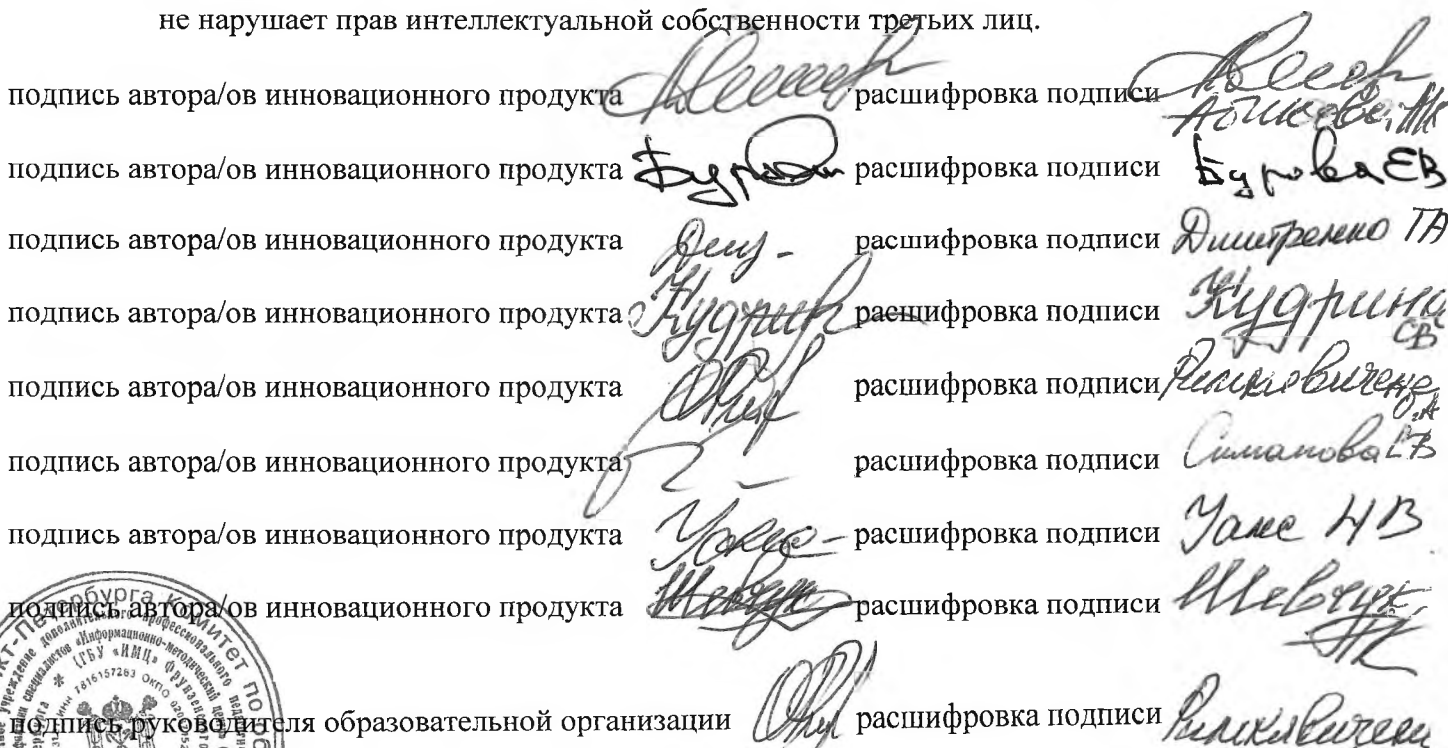 не нарушает прав интеллектуальной собственности третьих лиц.
подпись автора/ов инновационного продукта расшифровка подписи
подпись автора/ов инновационного продукта расшифровка подписи Бурова ЕВ
подпись автора/ов инновационного продукта расшифровка подписи Дмитренко ТА
подпись автора/ов инновационного продукта Кудрин расшифровка подписи Кудрина СВ
подпись автора/ов инновационного продукта расшифровка подписи Римкявичене О.А
подпись автора/ов инновационного продукта расшифровка подписи Симанова ЕВ
подпись автора/ов инновационного продукта расшифровка подписи Уакс НВ
подпись автора/ов инновационного продукта Шевчук расшифровка подписи Шевчук
подпись руководителя образовательной организации расшифровка подписи Римкявичене
ГБУ «ИМЦ»
ИНН 7816157263 ОКПО